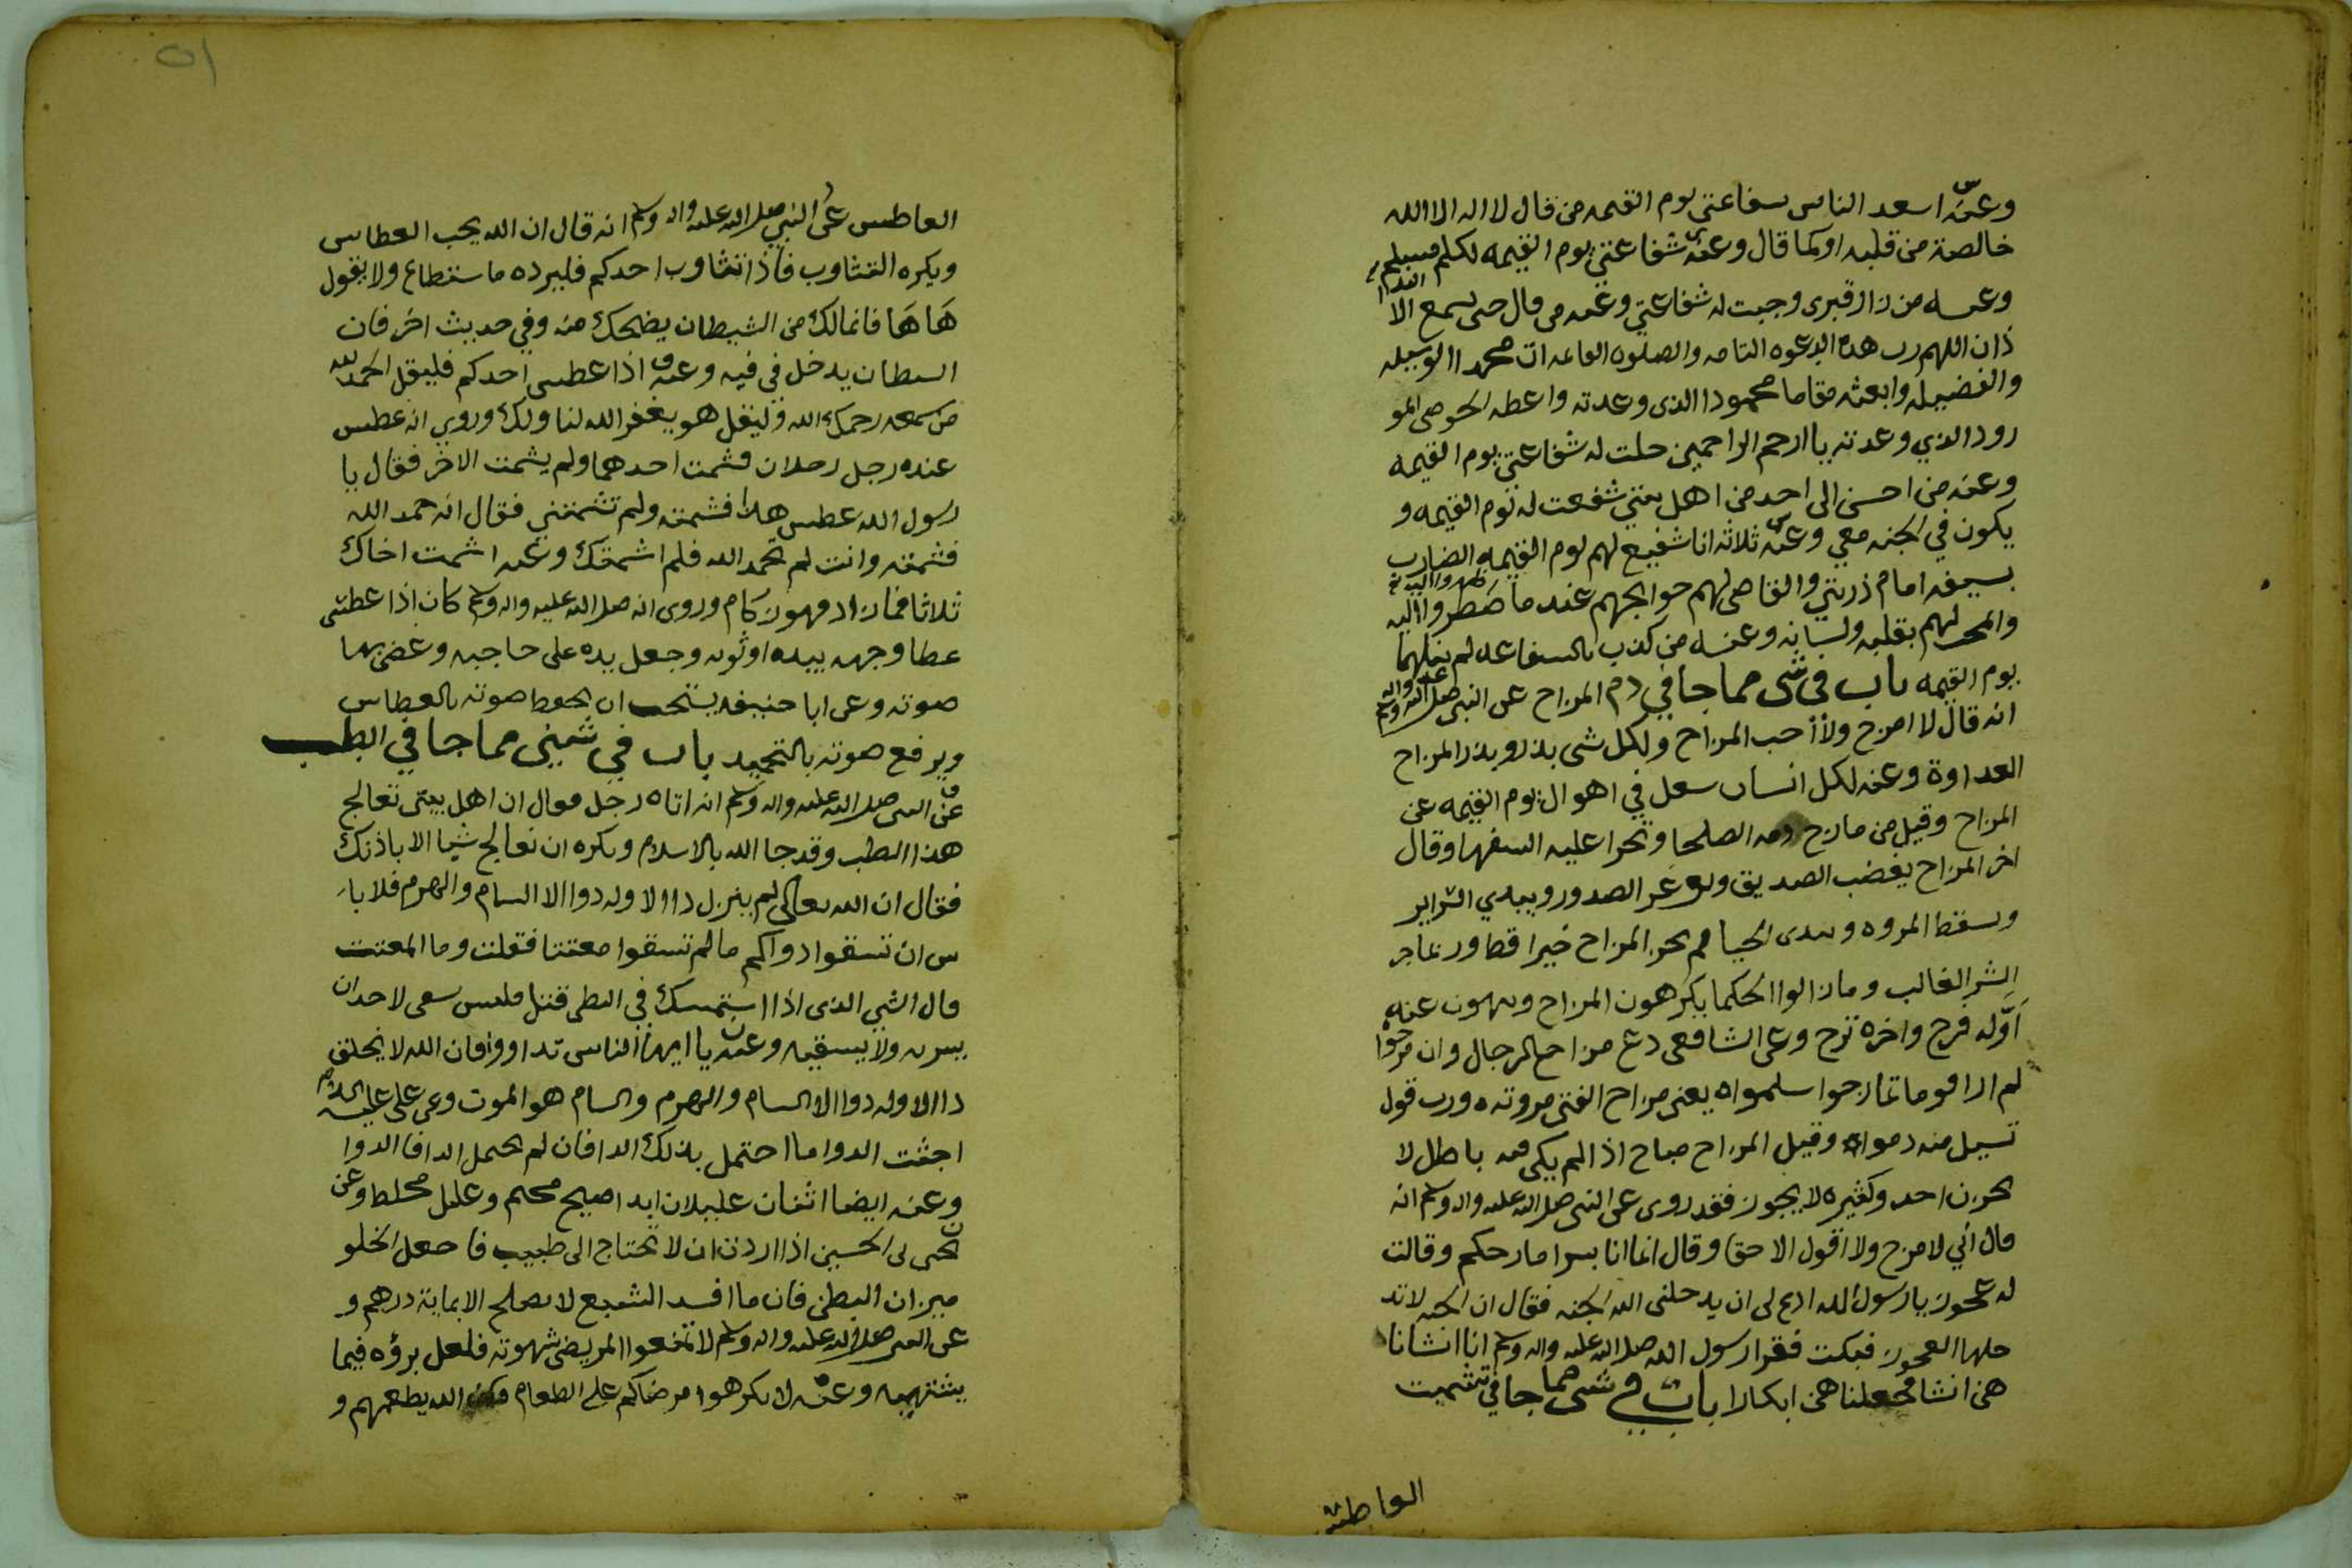 وعنه اسعد الناس بشفاعتي يوم القيمه من قال لا اله الا الله
خالصة من قلبه او كما قال وعنه شفاعتي يوم القيمه لكل مسلم
وعنه من زار قبري وجبت له شفاعتي وعنه من قال حين يسمع الا
ذان اللهم رب هذه الدعوه التامه والصلوه القائمه ات محمدا الوسيله
والفضيله وابعثه مقاما محمودا الذي وعدته واعطه الحوض المو
رود الذي وعدته يا ارحم الراحمين حلت له شفاعتي يوم القيمه
وعنه من احسن الى احد من اهل بيتي شفعت له يوم القيمه و
يكون في الجنه معي وعنه ثلاثه انا شفيع لهم يوم القيمه الضارب
بسيفه امام ذريتي والقاضي لهم حوايجهم عند ما ضطروا اليه
والمحب لهم بقلبه ولسانه وعنه من كذب بالشفاعه لم ينلها
يوم القيمه باب في شي مما جا في ذم المزاح عن النبي صلى الله عليه واله وسلم
انه قال لا امزح ولا أحب المزاح ولكل شي بذر وبذر المزاح
العداوة وعنه لكل انسان شغل في اهوال يوم القيمه عن
المزاح وقيل من مازح ذمه الصلحا وتجرا عليه السفها وقال
اخر المزاح يغضب الصديق ويوغر الصدور ويبدي السراير
ويسقط المروه ويبدي الخيا لم يجر المزاح خيرا قط وربما جر
الشر الغالب وما زالوا الحكما يكرهون المزاح وينهون عنه
أوله فرح واخره ترح وعن الشافعي دع مزاح الرجال وان مزحوا
لم ار اقوما تمازحوا سلموا ه يعني مزاح الفتى مروته ه ورب قول
تسيل منه دموا وقيل المزاح مباح اذا لم يكن فيه باطل لا
يحزن احد وكثيره لا يجوز فقد روي عن النبي صلى الله عليه واله وسلم انه
قال أني لامزح ولا اقول الا حقا وقال انما انا بشرا مازحكم وقالت
له عجوز يا رسول الله ادع لي ان يدخلني الله الجنه فقال ان الجنه لا تد
خلها العجوز فبكت فقرا رسول الله صلى الله عليه واله وسلم انا انشانا
هن انشا فجعلنا هن ابكارا باب في شي مما جا في تشميت
العاطس
العاطس عن النبي صلى الله عليه واله وسلم انه قال ان الله يحب العطاس
ويكره التثاوب فأذا تثاوب احدكم فليرده ما ستطاع ولا يقول
هَا هَا فانما لك من الشيطان يضحك منه وفي حديث اخر فان
الشيطان يدخل في فيه وعنه اذا عطس احدكم فليقل الحمد لله
من سمعه رحمك الله وليقل هو يغفر الله لنا ولك وروي انه عطس
عنده رجل رجلان فشمت احدهما ولم يشمت الاخر فقال يا
رسول الله عطس هذا فشمته ولم تشمتني فقال انه حمد الله
فشمته وانت لم تحمد الله فلم اشمتك وعنه اشمت اخاك
ثلاثا فما زاد فهو زكام وروي انه صلى الله عليه واله وسلم كان اذا عطش
عطا وجهه بيده او ثوبه وجعل يده على حاجبه وغض بها
صوته وعن ابا حنيفه يستحب ان يحفظ صوته بالعطاس
ويرفع صوته بالتحميد باب في شيئ مما جا في الطب
عن النبي صلى الله عليه واله وسلم انه اتاه رجل فقال ان اهل بيتي تعالج
هذا الطب وقد جا الله بالاسلام ونكره ان نعالج شيا الا باذنك
فقال ان الله تعالى لم ينزل داا الا وله دوا الا السام والهرم فلا با
س ان تسقوا دواكم ما لم تسقوا معتتا فقلت وما المعتت
قال الشي الذي اذا استمسك في البطن قتل فليس ينبغي لاحد ان
يشربه ولا يسقيه وعنه يا ايها الناس تداووا فان الله لا يخلق
داالا وله دوا الا السام والهرم والسام هو الموت وعن علي عليه السلام
اجتنب الدوا ما احتمل بدنك الدا فان لم يحتمل الدا فا الدوا
وعنه ايضا اثنان عليلان ابدا صيح محتم وعليل مخلط وعن
يحيى بن الحسين اذا اردت ان لا تحتاج الى طبيب فاجعل الخلو
ميزان البطن فان ما افسد الشبع لا يصلح الا بماية درهم و
عن النبي صلى الله عليه واله وسلم لا تمنعوا المريض شهوته فلعل برؤه فيما
يشتهيه وعنه لا تكرهوا مرضاكم على الطعام فان الله يطعمهم و